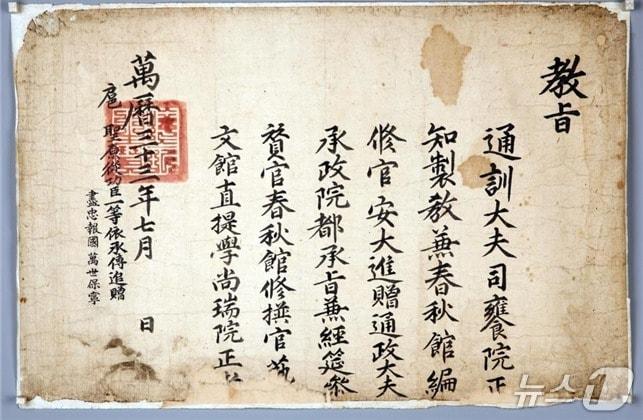 教旨
通訓大夫司饔院正
知製教兼春秋館編
修官安大進贈通政大夫
承政院都承旨兼經筵叅
賛官春秋館修撰官
文館直提學尚瑞院正
萬曆三十三年七月 日
扈聖原從功臣一等依承傳追贈
盡忠報國 萬世保寧
뉴스1